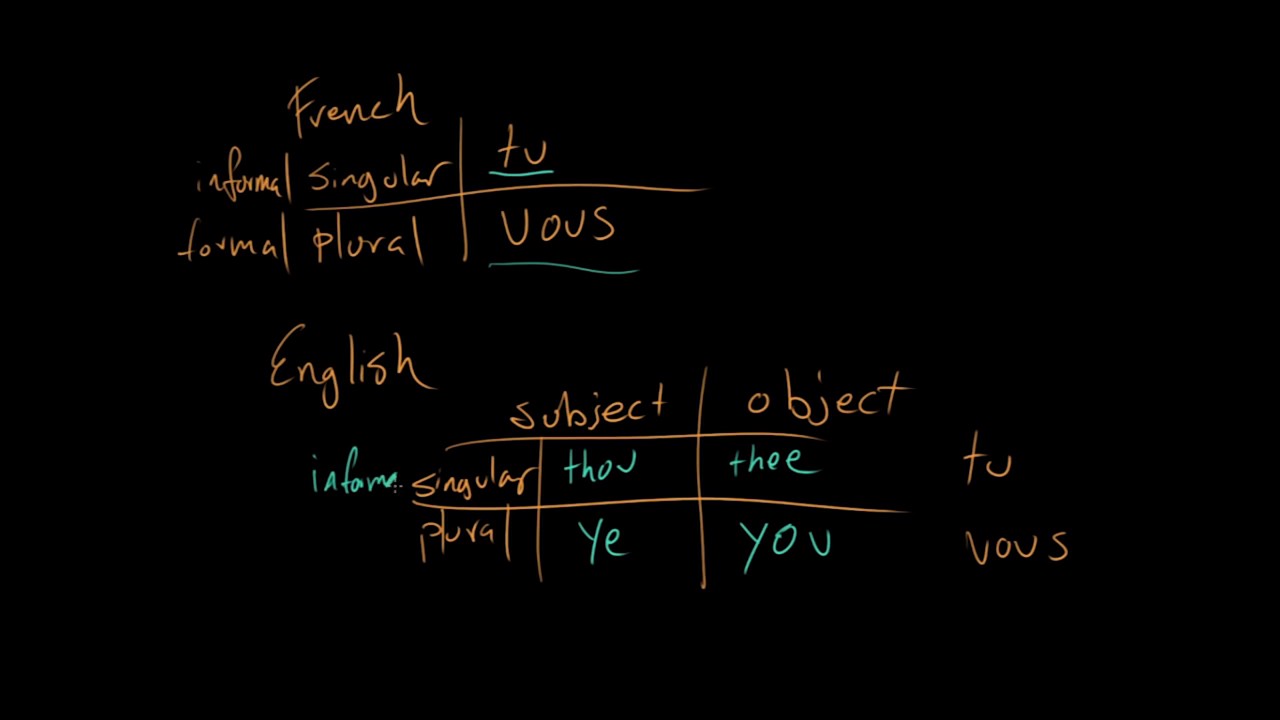 French
informal singular tu
formal plural vous
English
subject object
informa singular thou thee tu
plural ye you vous